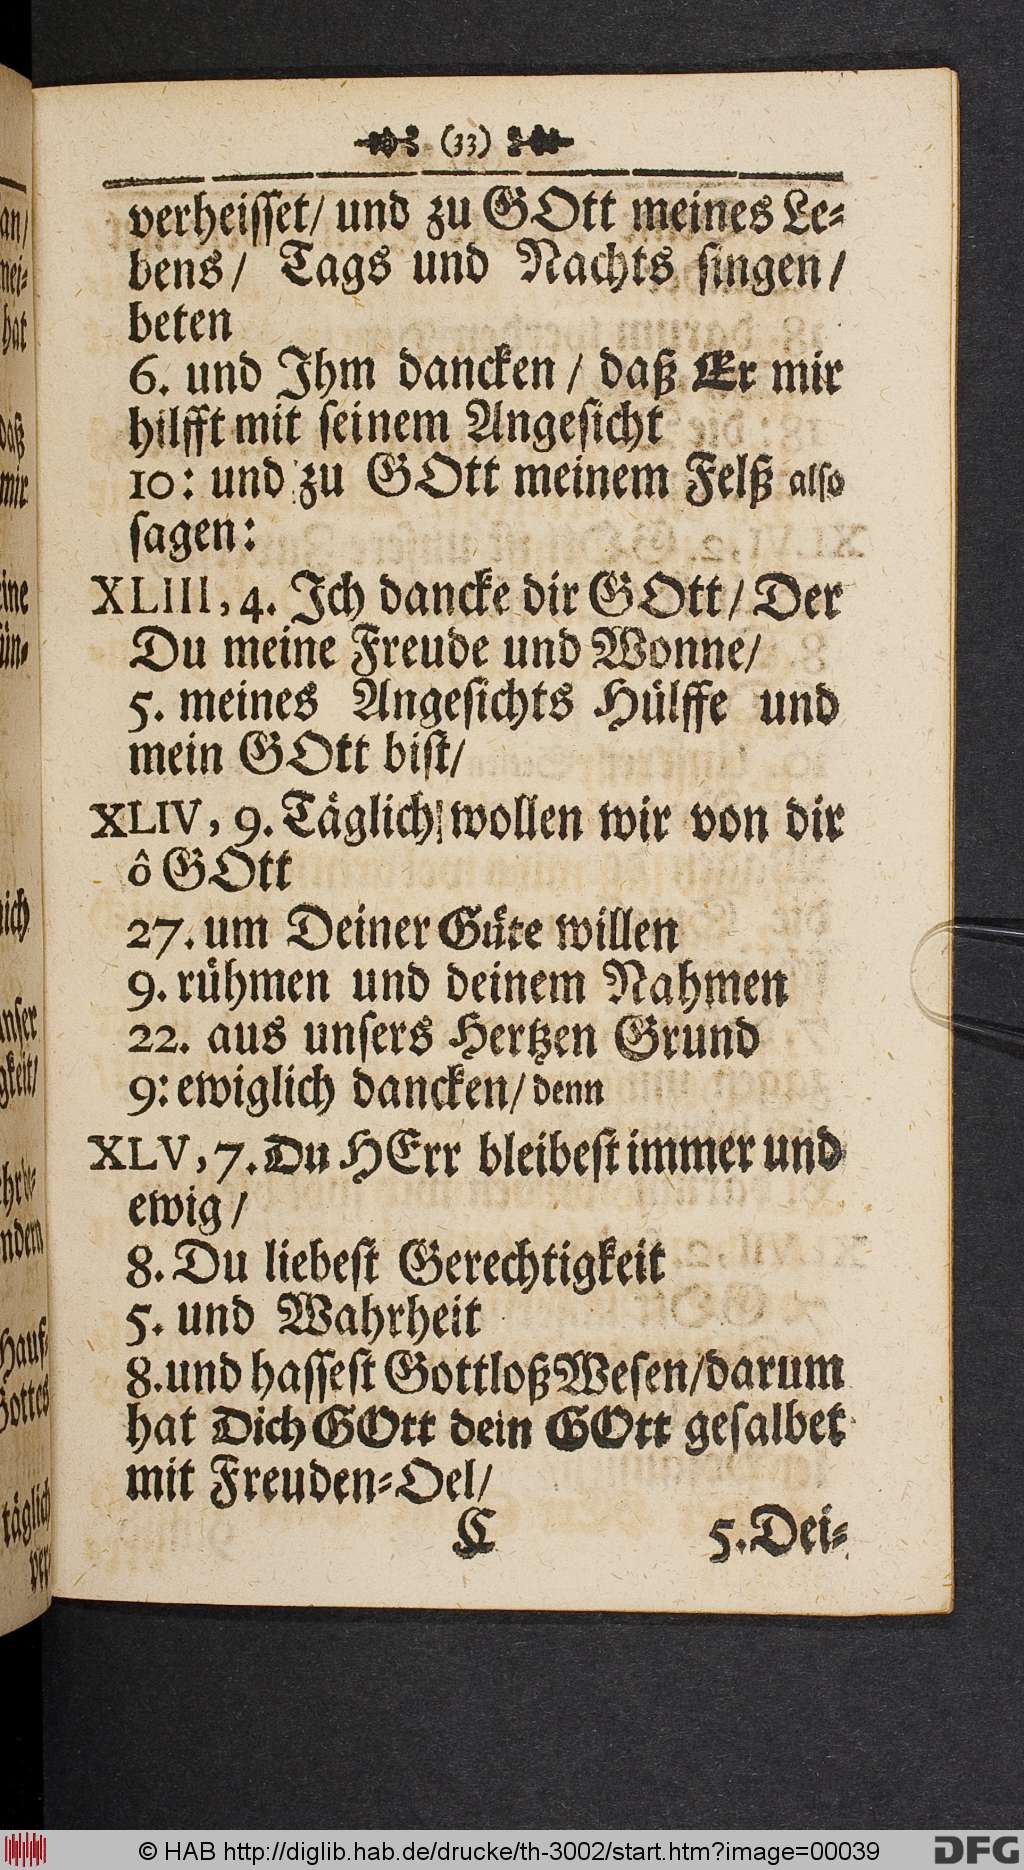 (33)
verheisset/ und zu GOtt meines Le-
bens/ Tags und Nachts singen/
beten
6. und Ihm dancken / daß Er mir
hilfft mit seinem Angesicht
10: und zu GOtt meinem Felß also
sagen:
XLIII, 4. Ich dancke dir GOtt/ Der
Du meine Freude und Wonne/
5. meines Angesichts Hülffe und
mein GOtt bist/
XLIV, 9. Täglich wollen wir von dir
ô GOtt
27. um Deiner Güte willen
9. rühmen und deinem Nahmen
22. aus unsers Hertzen Grund
9: ewiglich dancken/ denn
XLV, 7. Du HErr bleibest immer und
ewig /
8. Du liebest Gerechtigkeit
5. und Wahrheit
8. und hassest Gottloß Wesen/ darum
hat Dich GOtt dein GOtt gesalbet
mit Freuden-Oel/
C 5. Dei-
© HAB http://diglib.hab.de/drucke/th-3002/start.htm?image=00039
DFG